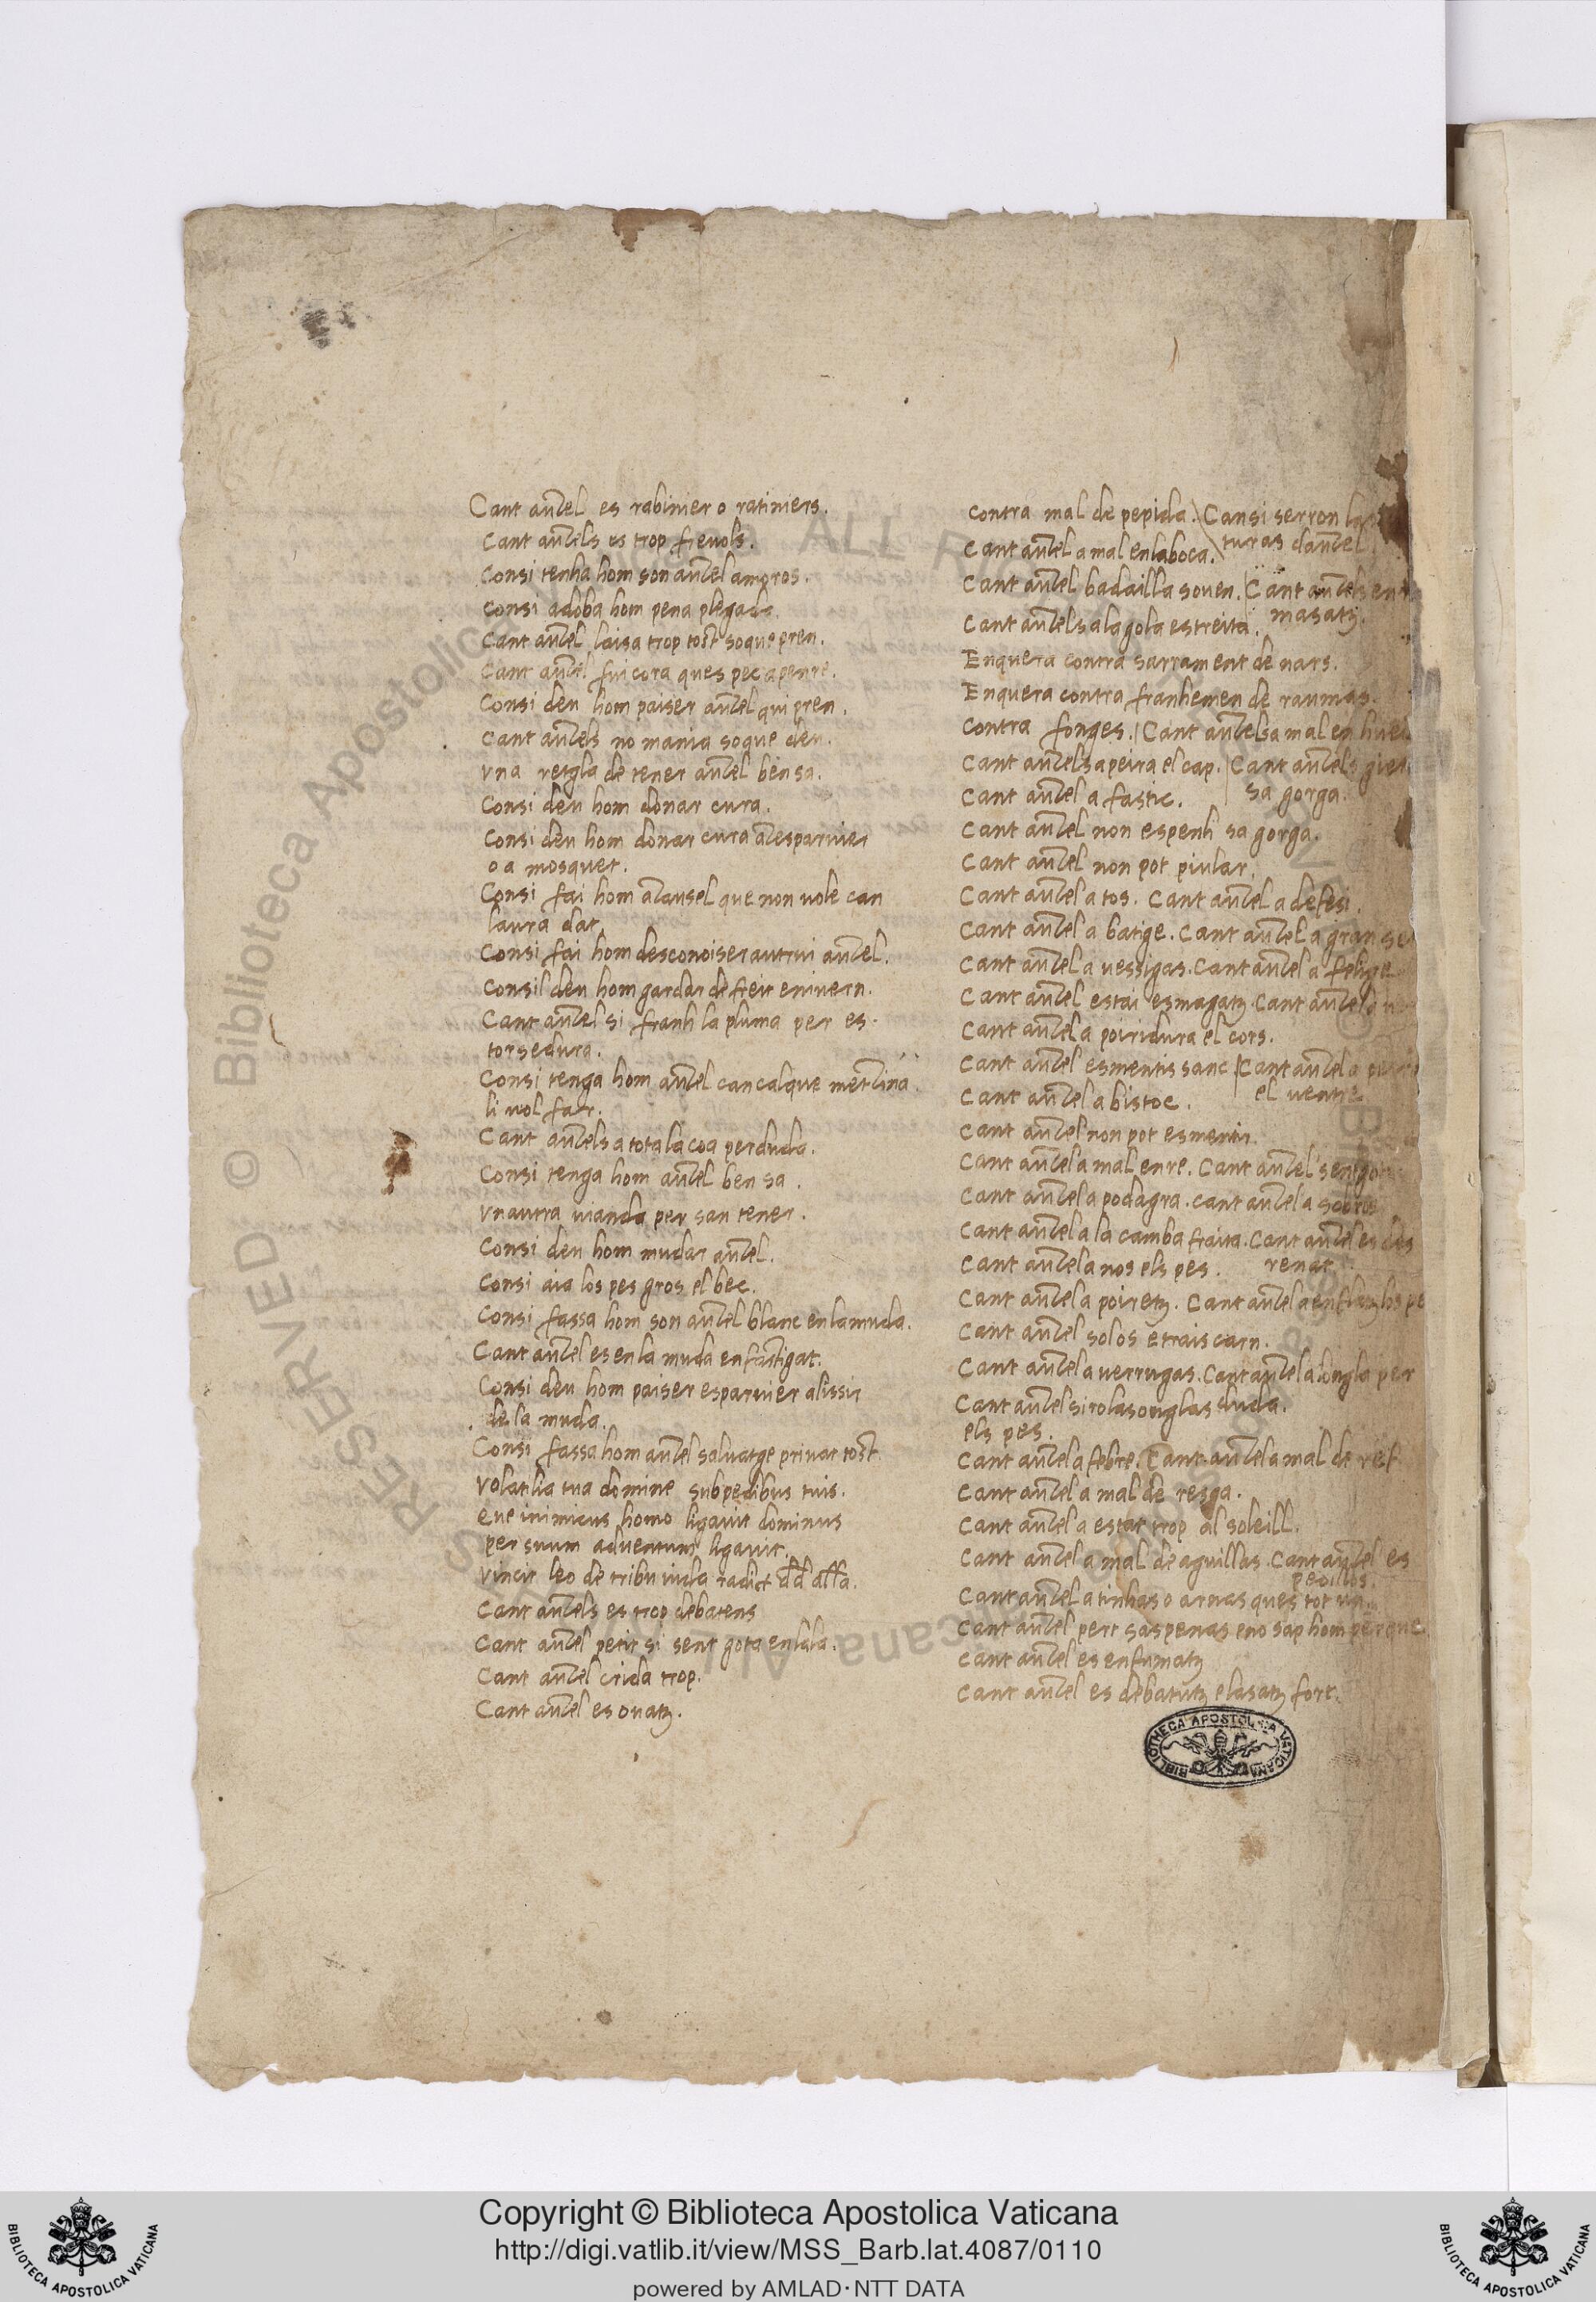 Cant au͂zel es rabinier o ratiniers.
Cant au͂zels es trop freuols.
Consi tenha hom son au͂zel amoros.
Consi adoba hom pena plegada.
Cant au͂zel laisa trop tost so que pren.
Cant au͂zel fui cora ques pec a penre.
Consi deu hom paiser au͂zel qui pren.
Cant au͂zels no mania so que deu.
vna retgla de tener au͂zel ben sa.
Consi deu hom donar cura.
Consi deu hom donar cura az esparuier
o a mosquet.
Consi fai hom az ausel que non uole can
laura dat.
Consi fai hom desconoiser autrui au͂zel.
Consil deu hom gardar de freit en iuern.
Cant au͂zel si franh la pluma per es-
torsedura.
Consi tenga hom au͂zel can calque metzina
li uol far.
Cant au͂zels a tota la coa perduda.
Consi tenga hom au͂zel ben sa.
vnautra uianda per san tener.
Consi deu hom mudar au͂zel.
Consi aia los pes gros el bec.
Consi fassa hom son au͂zel blanc en la muda.
Cant au͂zel es en la muda enfastigat.
Consi deu hom paiser esparuier al issir
de la muda.
Consi fassa hom au͂zel saluatge priuat tost
volatilia tua domine sub pedibus tuis.
que inimicus homo ligauit dominus
per suum aduentum ligauit.
vincit leo de tribu iuda radix dd alla.
Cant au͂zels es trop debatens
Cant au͂zel petit si sent gota en lala.
Cant au͂zel crida trop.
Cant au͂zel es ouatz.
Contra mal de pepida. Cansi serron las
turas dau͂zel
Cant au͂zel a mal en la boca.
Cant au͂zel badailla souen. Cant au͂zels
masatz.
Cant au͂zels a la gola estreita.
Enquera contra sarrament de nars.
Enquera contra franhemen de raumas.
Contra fonges. Cant au͂zels a mal en
Cant au͂zels a peira el cap. Cant au͂zels
sa gorga.
Cant au͂zel a fastic.
Cant au͂zel non espenh sa gorga.
Cant au͂zel non pot piular.
Cant au͂zel a tos. Cant au͂zel a defesi.
Cant au͂zel a batige. Cant au͂zel a gran
Cant au͂zel a uessigas. Cant au͂zel a
Cant au͂zel estai esmagatz. Cant au͂zel a
Cant au͂zel a poiridura el cors.
Cant au͂zel esmentis sanc. Cant au͂zel a
el uentre
Cant au͂zel a bistoc.
Cant au͂zel non pot esmentir.
Cant au͂zel a mal enre. Cant au͂zel sen
Cant au͂zel a podagra. Cant au͂zel a sobros
Cant au͂zel a la camba fraita. Cant au͂zel es des
renat
Cant au͂zel a nos els pes.
Cant au͂zel a poiretz. Cant au͂zel a enflatz los pe
Cant au͂zel sol os e trais carn.
Cant au͂zel a uerrugas. Cant au͂zel a longla per
duda.
Cant au͂zel si rol las onglas
els pes.
Cant au͂zel a febre. Cant au͂zel a mal de
Cant au͂zel a mal de resga.
Cant au͂zel a estat trop al soleill.
Cant au͂zel a mal de aguillas. Cant au͂zel es
peoillos.
Cant au͂zel a tinhas o arnas ques tot
Cant au͂zel pert sas penas e no sap hom per que
Cant au͂zel es enfumatz
Cant au͂zel es debatutz e lasatz fort.
BIBLIOTHECA APOSTOLICA VATICANA
© Biblioteca Apostolica Vaticana ALL RIGHTS RESERVED
Copyright © Biblioteca Apostolica Vaticana
http://digi.vatlib.it/view/MSS_Barb.lat.4087/0110
powered by AMLAD·NTT DATA
BIBLIOTECA APOSTOLICA VATICANA
BIBLIOTECA APOSTOLICA VATICANA